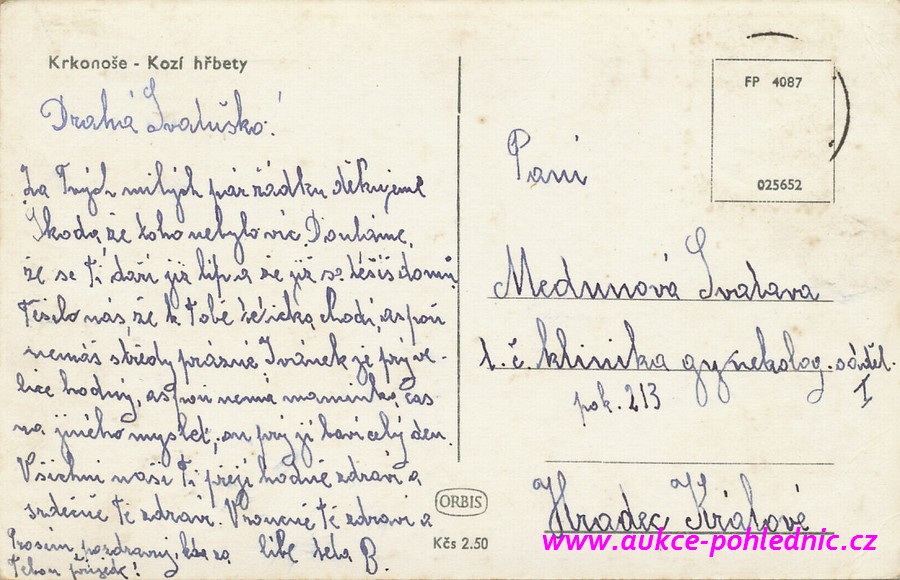 Krkonoše - Kozí hřbety
Drahá Svatuško!
Za Tvých milých pár řádků děkujeme
Škoda, že toho nebylo víc. Doufáme,
že se Ti daří již líp a že již se těšíš domů.
Těšilo nás, že k Tobě tetička chodí, aspoň
nemáš středy prázné Ivánek je prý ve-
lice hodný, aspoň nemá maminka čas
na jiného myslet, on prý ji baví celý den.
Všichni naši Ti přejí hodně zdraví a
srdečně Tě zdraví. Vroucně Tě zdraví a
Prosím, pozdravuj, kdo za líbe teta B.
Tebou přijede!
FP 4087
025652
Paní
Medunová Svatava
t. č. klinika gynekolog. odděl.
pok. 213 I
Hradec Králové
ORBIS
Kčs 2.50
www.aukce-pohlednic.cz